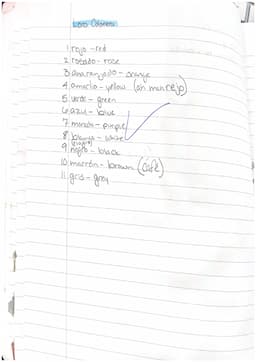 Los Colores
1 rojo - red
2 rosado - rose
3 anaranjado - orange
4 amarillo - yellow (sin manrejo)
5 verde - green
6 azul - blue
7 morado - purple
8 blanco - white
9 negro - black
10 marrón - brown (café)
11 gris - gray